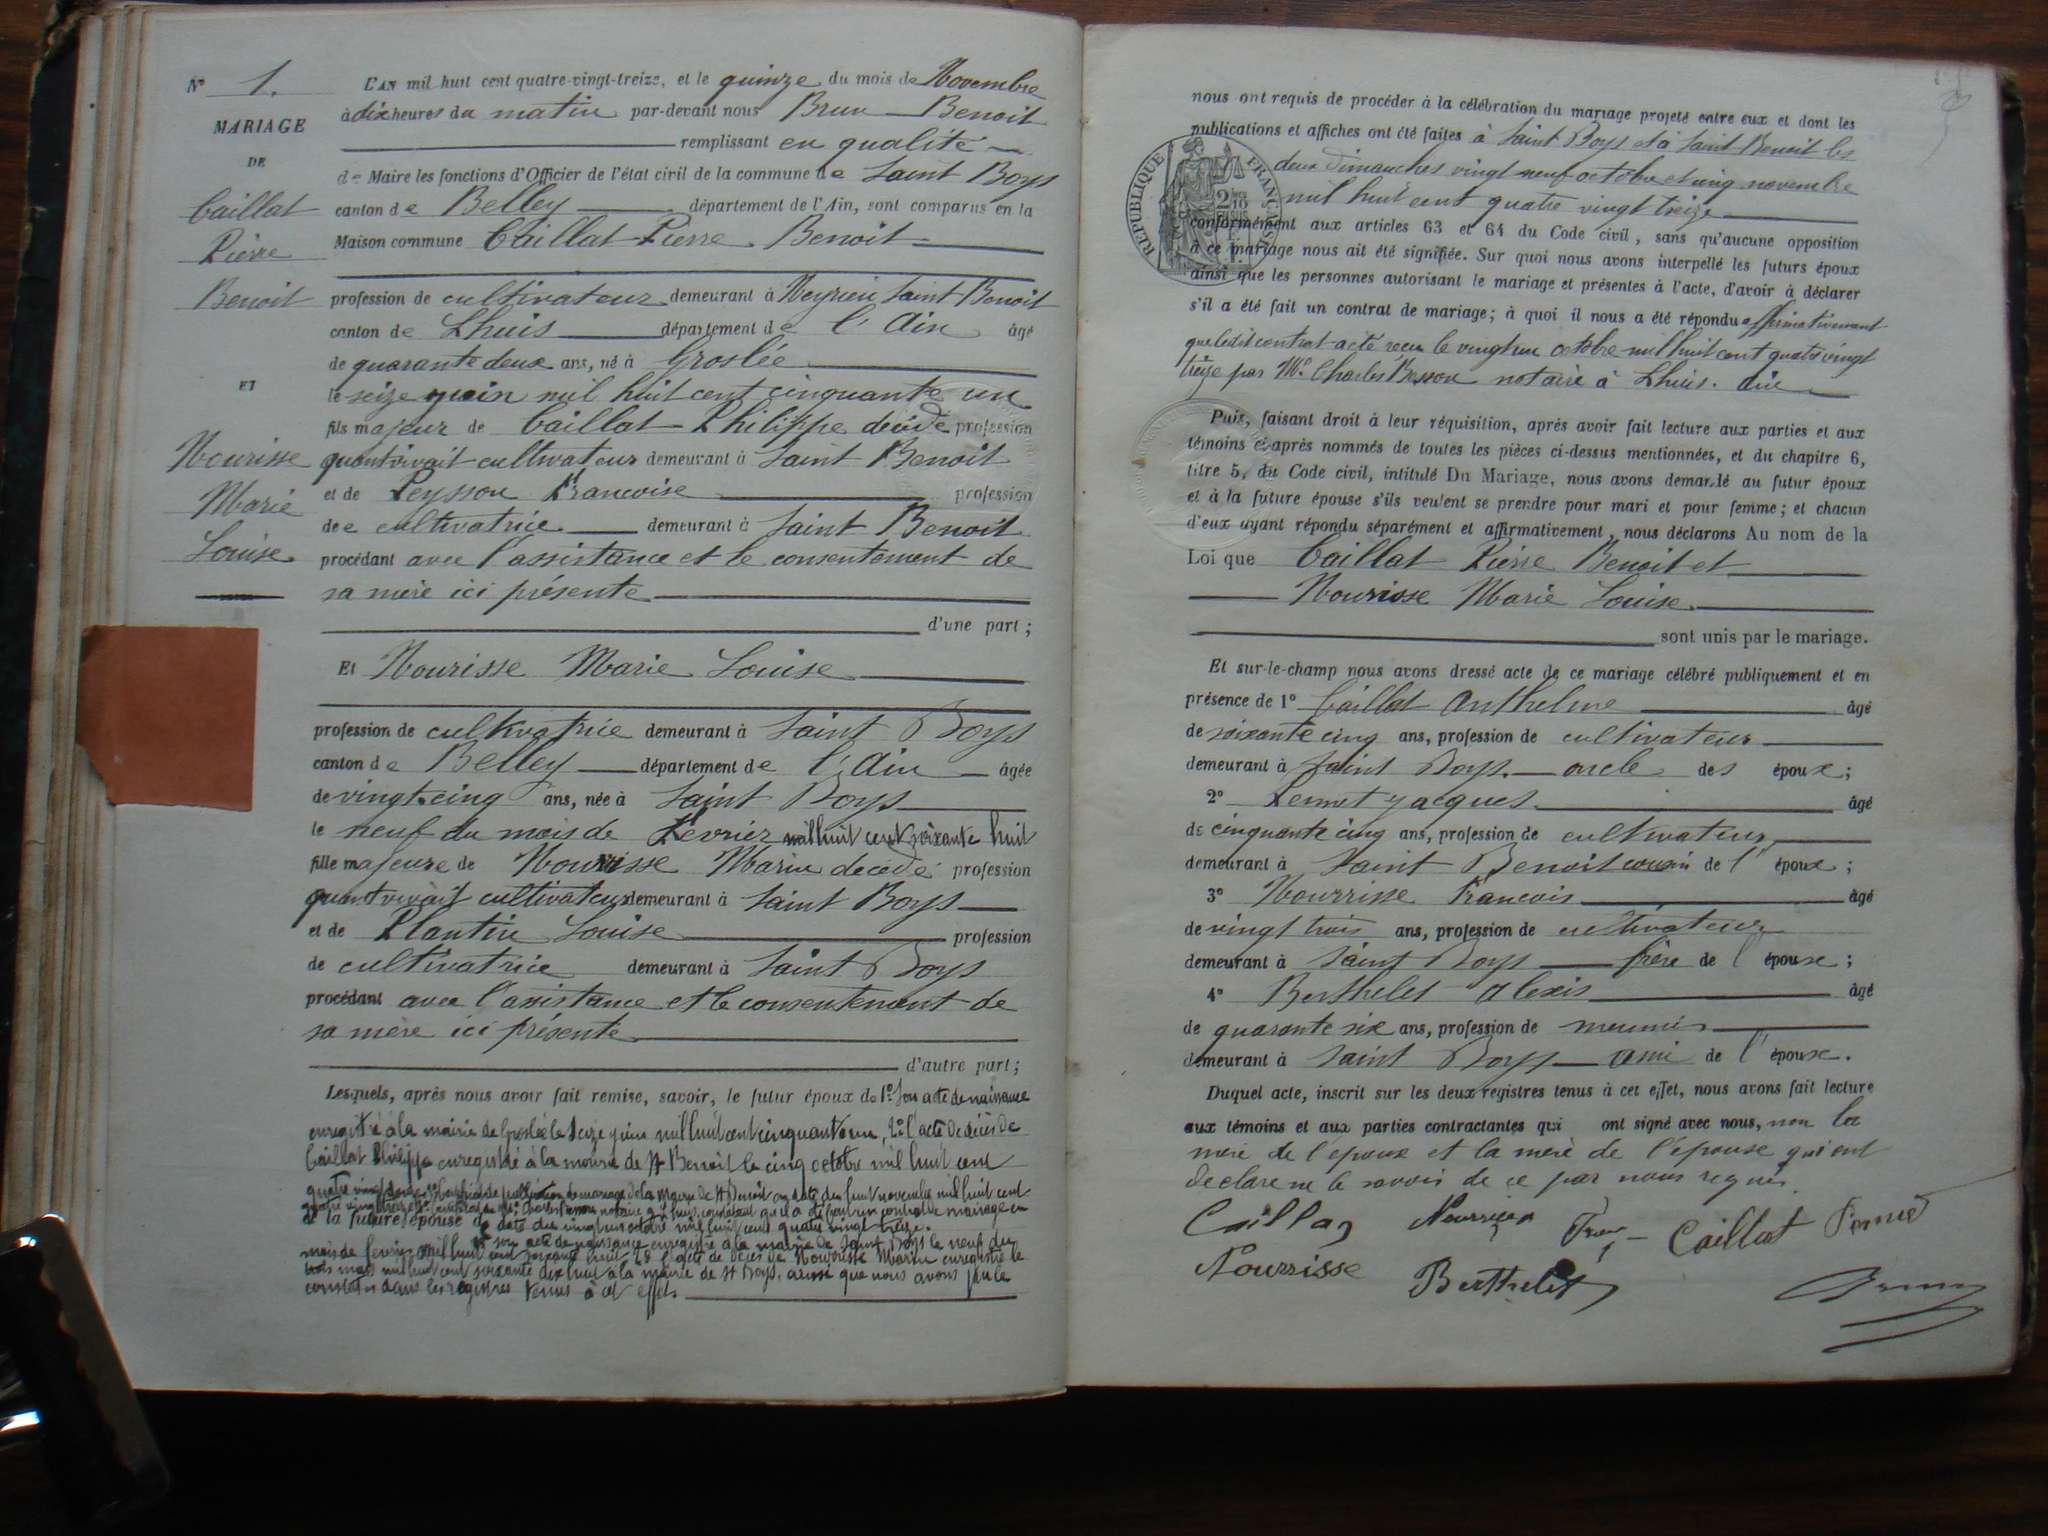 N° 1.
MARIAGE
DE
Caillat
Pierre
Benoit
ET
Nourisse
Marie
Louise
L'AN mil huit cent quatre-vingt-treize, et le quinze du mois de Novembre
à dix heures du matin par-devant nous Brun Benoit
remplissant en qualité
de Maire les fonctions d'Officier de l'état civil de la commune de Saint Boys
canton de Belley département de l'Ain, sont comparus en la
Maison commune Caillat Pierre Benoit
profession de cultivateur demeurant à Meyrieu Saint Benoit
canton de Lhuis département de l'Ain âgé
de quarante deux ans, né à Groslée
le seize juin mil huit cent cinquante un
fils majeur de Caillat Philippe décédé profession
quant vivait cultivateur demeurant à Saint Benoit
et de Peysson Francoise profession
de cultivatrice demeurant à Saint Benoit
procédant avec l'assistance et le consentement de
sa mère ici présente
d'une part;
Et Nourisse Marie Louise
profession de cultivatrice demeurant à Saint Boys
canton de Belley département de l'Ain âgée
de vingt cinq ans, née à Saint Boys
le neuf du mois de Fevrier mil huit cent soixante huit
fille majeure de Nourisse Marin decédé profession
quant vivait cultivateur demeurant à Saint Boys
et de Plantin Louise profession
de cultivatrice demeurant à Saint Boys
procédant avec l'assistance et le consentement de
sa mère ici présente
d'autre part;
Lesquels, après nous avoir fait remise, savoir, le futur époux de 1° son acte de naissance
enregistré à la mairie de Groslée le seize juin mil huit cent cinquante un, 2° l'acte de décès de
Caillat Philippe enregistré à la mairie de St Benoit le cinq octobre mil huit cent
de mariage de la mairie de St Benoit en date du huit novembre mil huit cent
de la future épouse date du vingt un octobre mil huit cent quatre vingt treize.
son acte de naissance enregistré à la mairie de Saint Boys le neuf du
mois de fevrier mil huit cent soixante huit 2° l'acte de décès de Nourrisse Martin enregistré le
trois mars mil huit cent soixante dix huit à la mairie de St Boys, ainsi que nous avons pu le
constater dans les registres tenus à cet effet.
nous ont requis de procéder à la célébration du mariage projeté entre eux et dont les
publications et affiches ont été faites à Saint Boys et à Saint Benoit les
deux dimanches vingt neuf octobre et cinq novembre
mil huit cent quatre vingt treize
conformément aux articles 63 et 64 du Code civil, sans qu'aucune opposition
à ce mariage nous ait été signifiée. Sur quoi nous avons interpellé les futurs époux
ainsi que les personnes autorisant le mariage et présentes à l'acte, d'avoir à déclarer
s'il a été fait un contrat de mariage; à quoi il nous a été répondu affirmativement
que ledit contrat acté recu le vingt un octobre mil huit cent quatre vingt
treize par Me Charles Besson notaire à Lhuis. Ain
RÉPUBLIQUE FRANÇAISE
Puis, faisant droit à leur réquisition, après avoir fait lecture aux parties et aux
témoins ci-après nommés de toutes les pièces ci-dessus mentionnées, et du chapitre 6,
titre 5, du Code civil, intitulé Du Mariage, nous avons demandé au futur époux
et à la future épouse s'ils veulent se prendre pour mari et pour femme; et chacun
d'eux ayant répondu séparément et affirmativement, nous déclarons Au nom de la
Loi que Caillat Pierre Benoit et
Nourisse Marie Louise.
sont unis par le mariage.
Et sur-le-champ nous avons dressé acte de ce mariage célébré publiquement et en
présence de 1° Caillat Anthelme âgé
de soixante cinq ans, profession de cultivateur
demeurant à Saint Boys. oncle des époux;
2° Pernet Jacques âgé
de cinquante cinq ans, profession de cultivateur
demeurant à Saint Benoit cousin de l' époux;
3° Nourrisse Francois âgé
de vingt trois ans, profession de cultivateur
demeurant à Saint Boys frère de l' épouse;
4° Berthelet Alexis âgé
de quarante six ans, profession de meunier
demeurant à Saint Boys ami de l' épouse.
Duquel acte, inscrit sur les deux registres tenus à cet effet, nous avons fait lecture
aux témoins et aux parties contractantes qui ont signé avec nous, non la
mère de l'époux et la mère de l'épouse qui ont
declare ne le savoir de ce par nous requis.
Caillat Nourrisse Caillat Pernet
Nourrisse Berthelet Brun